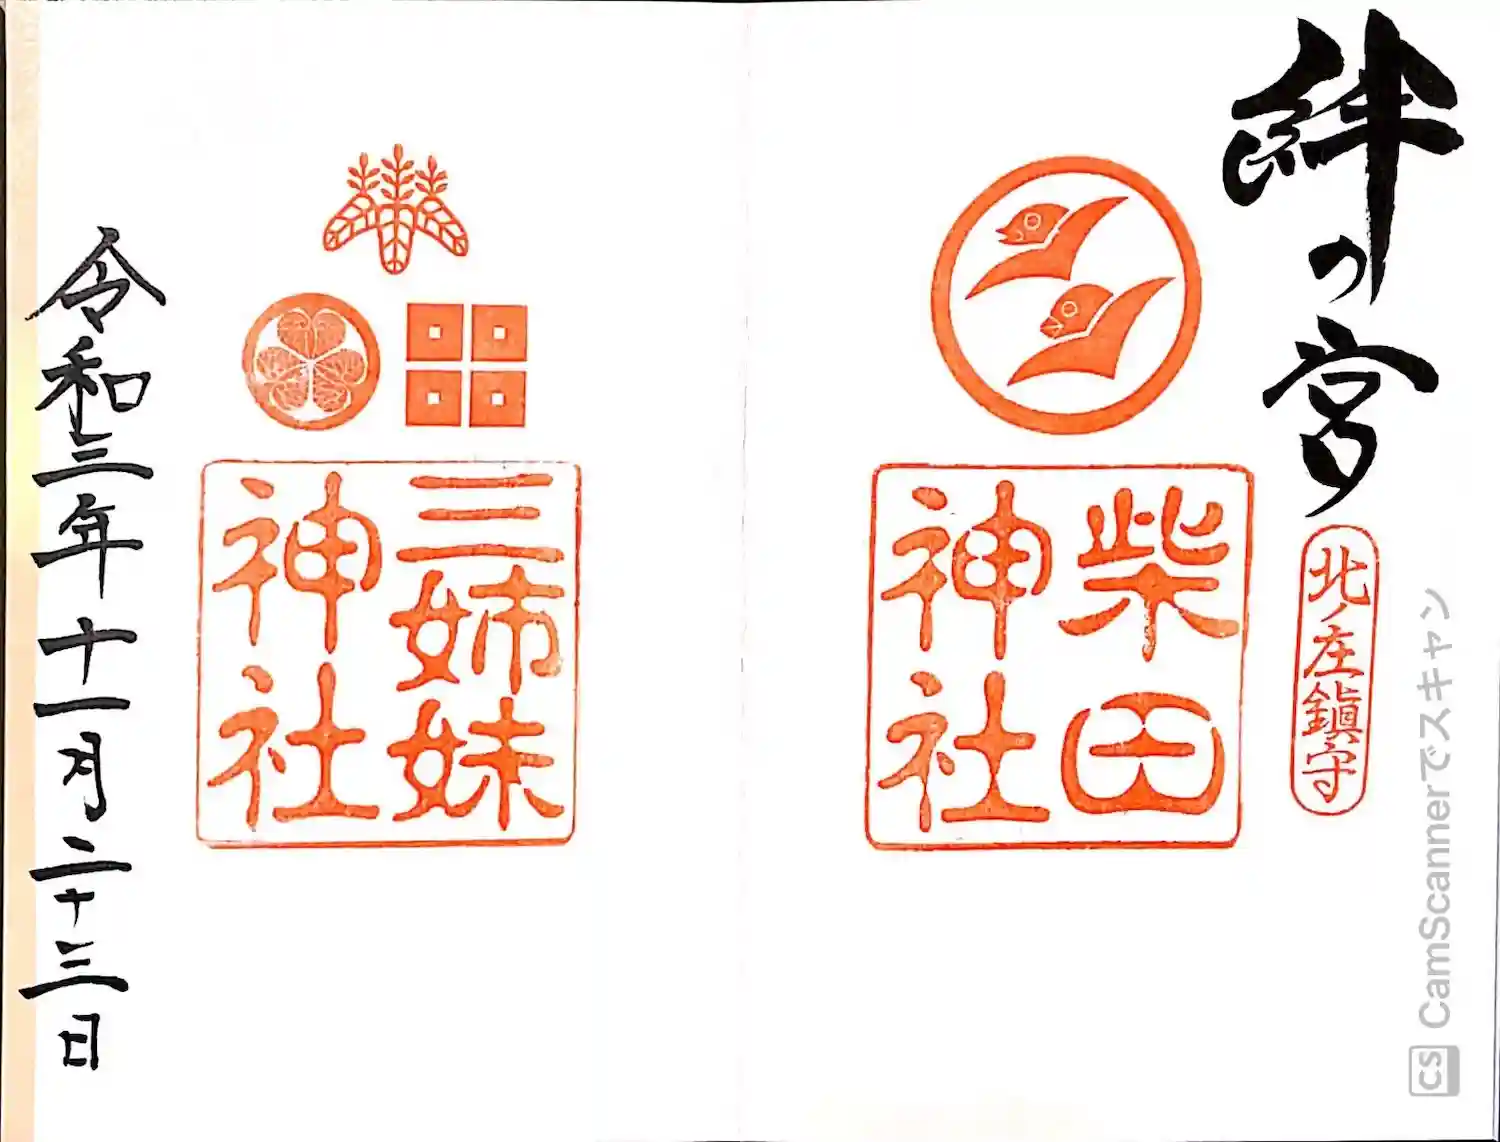 絆の宮
北ノ庄鎮守
柴田
神社
三姉妹
神社
令和三年十一月二十三日
CS CamScannerでスキャン